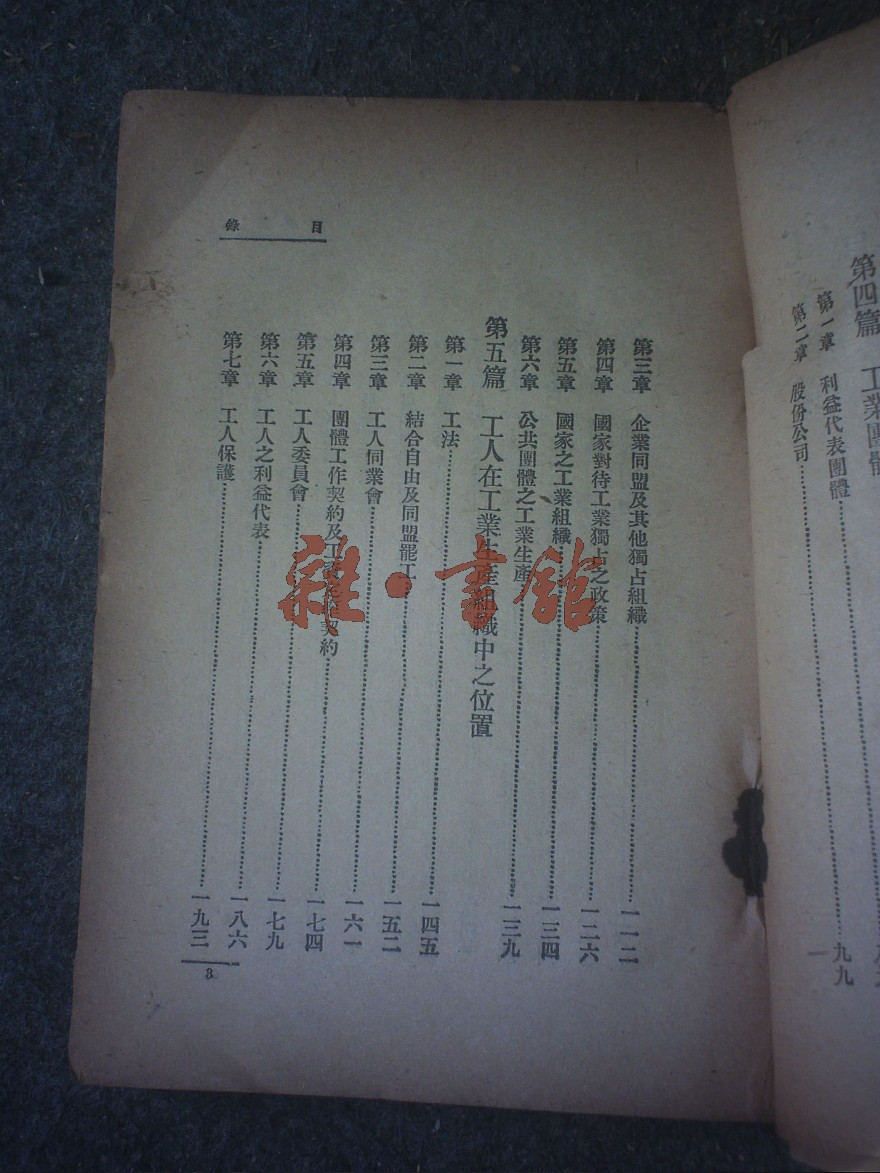 第四篇 工業團體
第一章 利益代表團體……九九
第二章 股份公司……一
目錄
第三章 企業同盟及其他獨占組織……一一二
第四章 國家對待工業獨占之政策……一二六
第五章 國家之工業組織……一三四
第六章 公共團體之工業生產……一三九
第五篇 工人在工業生產組織中之位置
第一章 工法……一四五
第二章 結合自由及同盟罷工……一五二
第三章 工人伺業會……一六一
第四章 團體工作契約及工契約……一七四
第五章 工人委員會……一七九
第六章 工人之利益代表……一八六
第七章 工人保護……一九三
3
雜·書館